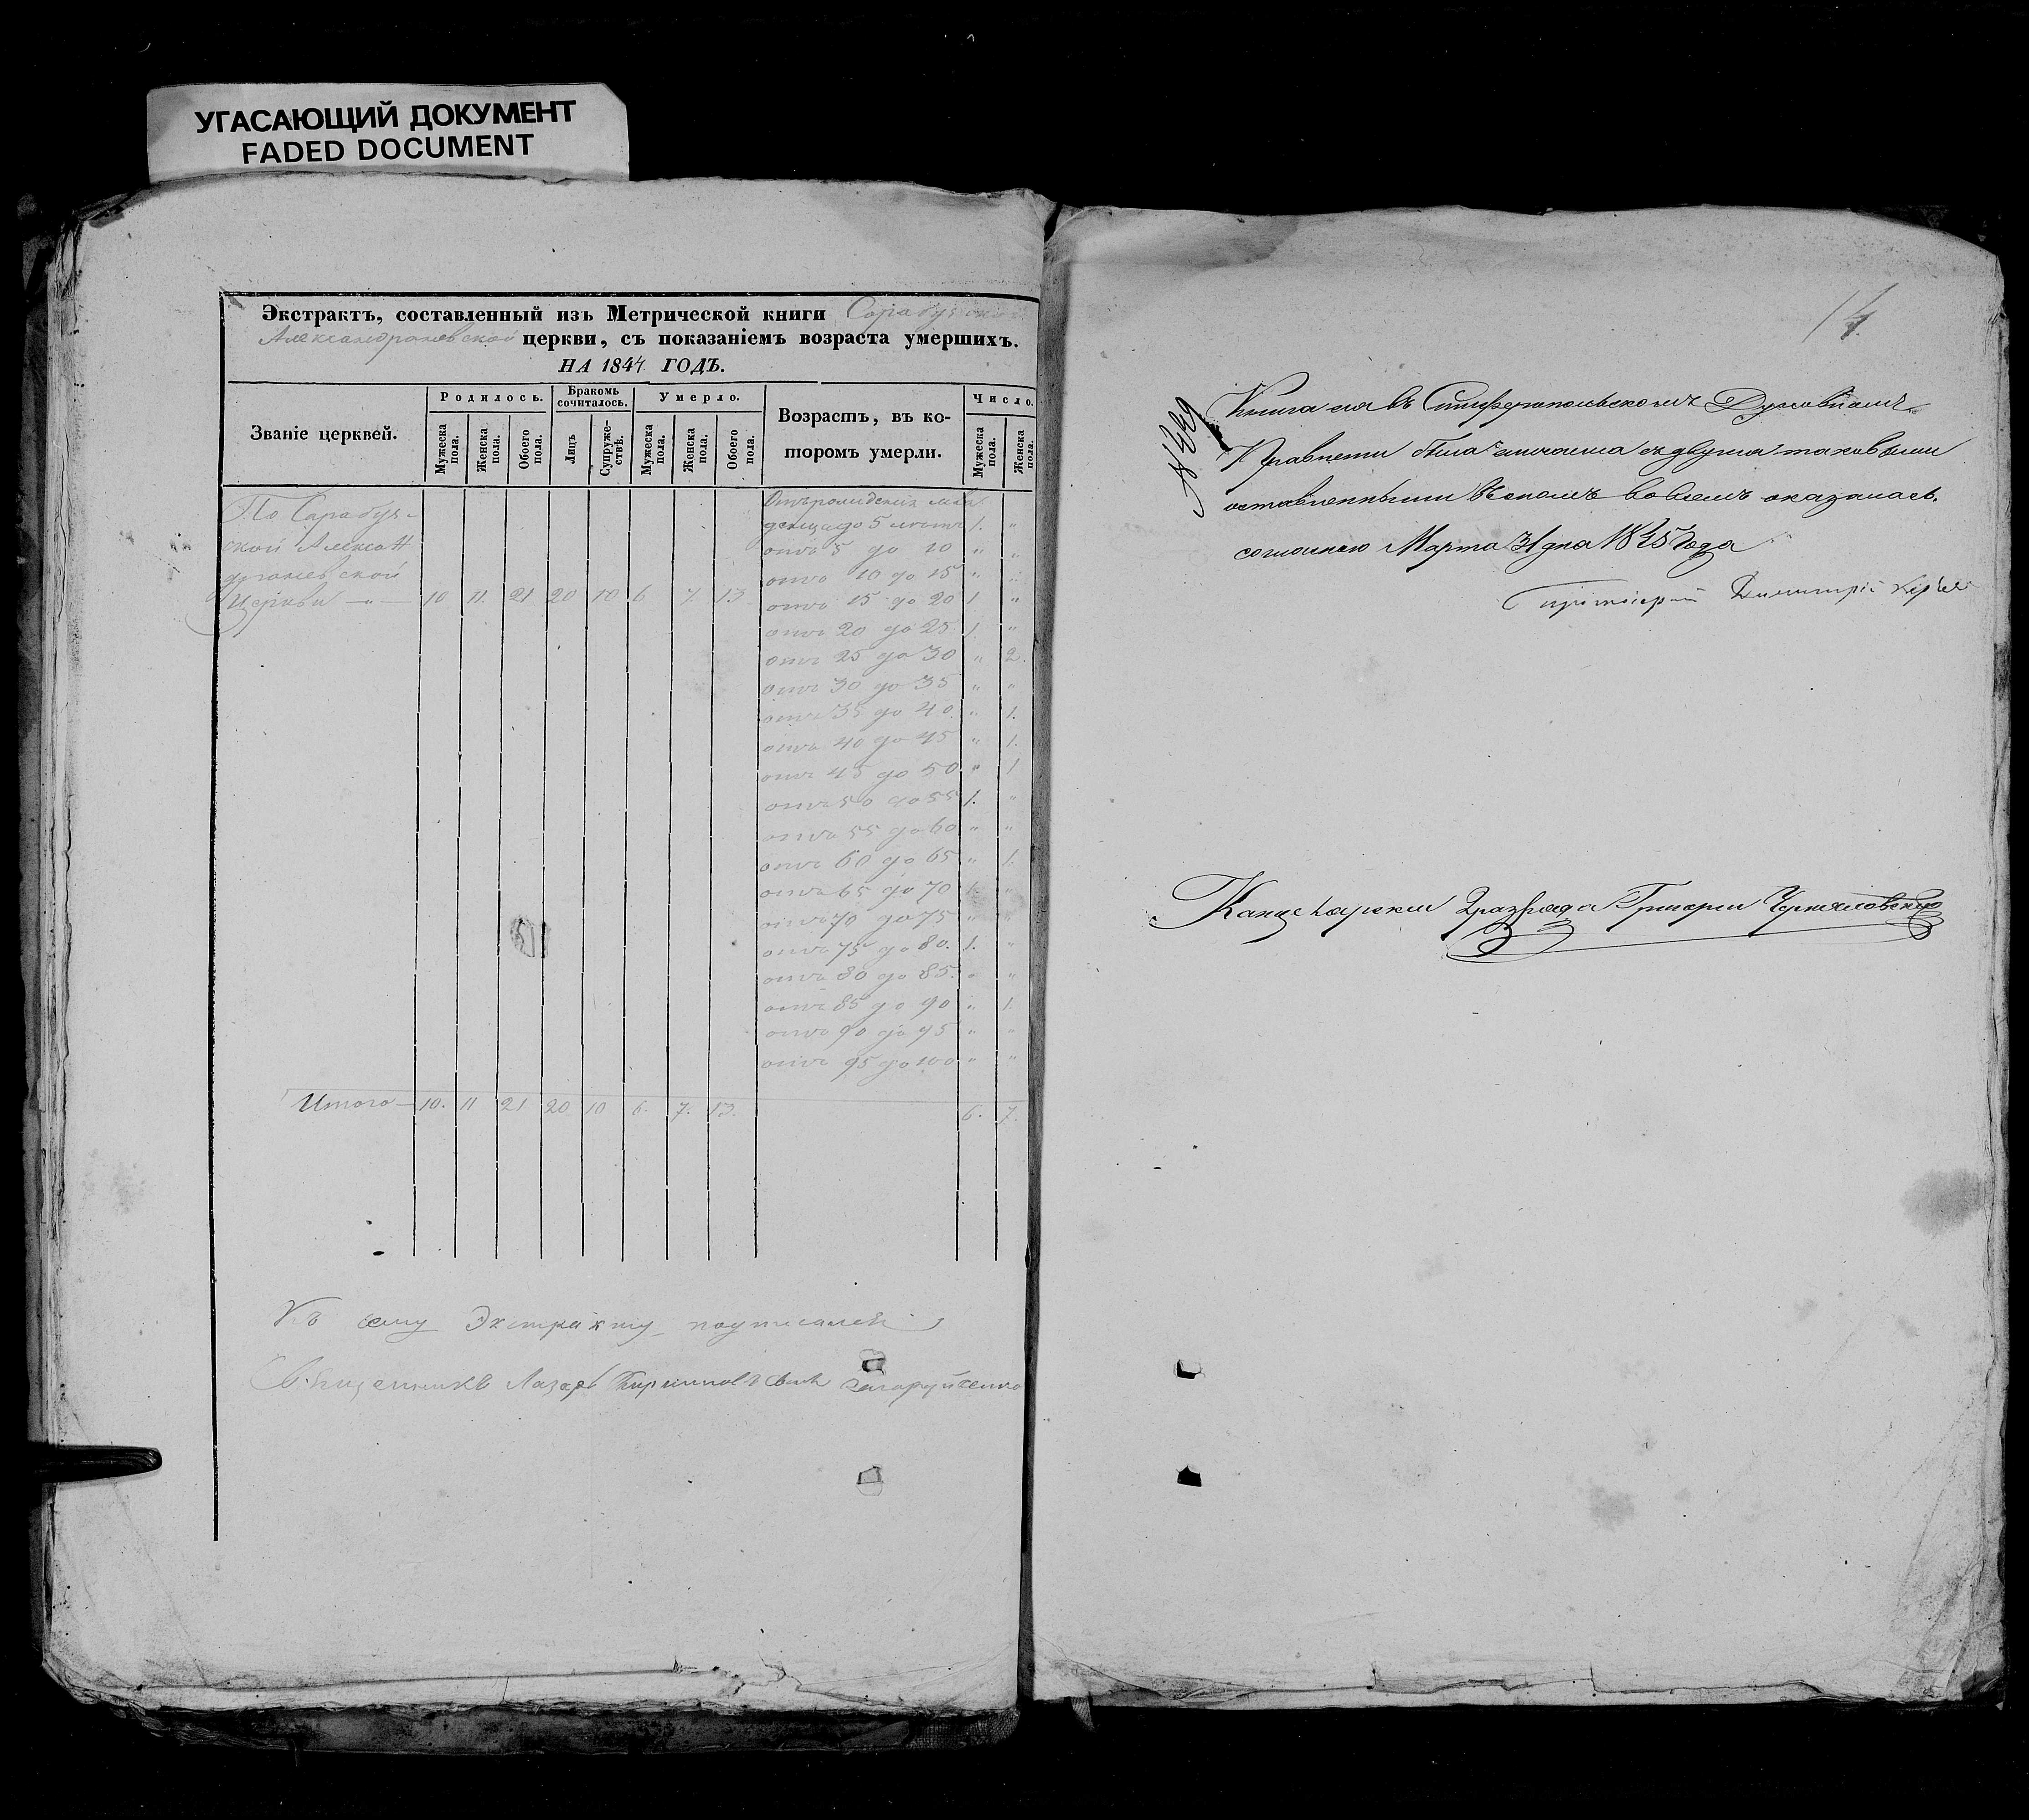 УГАСАЮЩИЙ ДОКУМЕНТ
FADED DOCUMENT
Экстрактъ, составленный изъ Метрической книги Сарабузской
Александроневской церкви, съ показаніемъ возраста умершихъ.
НА 1844 ГОДЪ.
Званіе церквей.
Родилось.
Мужеска пола.
Женска пола.
Обоего пола.
Бракомъ сочиталось.
Лицъ
Супружествъ.
Умерло.
Мужеска пола.
Женска пола.
Обоего пола.
Возрастъ, въ ко-
торомъ умерли.
Число.
Мужеска пола.
Женска пола.
По Сарабуз-
ской Алексан
дроневской
Церкви — 10 11. 21 20 10 6 7. 13
Отъ рожденія мла
денца до 5 летъ 1. "
отъ 5 до 10 " "
отъ 10 до 15 " "
отъ 15 до 20 1. "
отъ 20 до 25 1. "
отъ 25 до 30 " 2.
отъ 30 до 35 " "
отъ 35 до 40 " 1.
отъ 40 до 45 " 1.
отъ 45 до 50 " 1
отъ 50 до 55 1. "
отъ 55 до 60 " "
отъ 60 до 65 " 1.
отъ 65 до 70 1. "
отъ 70 до 75 " "
отъ 75 до 80. 1. "
отъ 80 до 85. " "
отъ 85 до 90 " 1.
отъ 90 до 95 " "
отъ 95 до 100 " "
Итого — 10. 11 21 20 10 6. 7. 13. 6. 7.
Къ сему Экстракту подписался
Священникъ Лазарь
14
Книга сія въ Симферопольскомъ Духовномъ
Правленіи была с двумя таковыми
оставленными во всемъ оказалась
согласною Марта 31 дня 1845 Года
Протоіерей Димитрій
Канцеляристъ 2 разряда Григорій